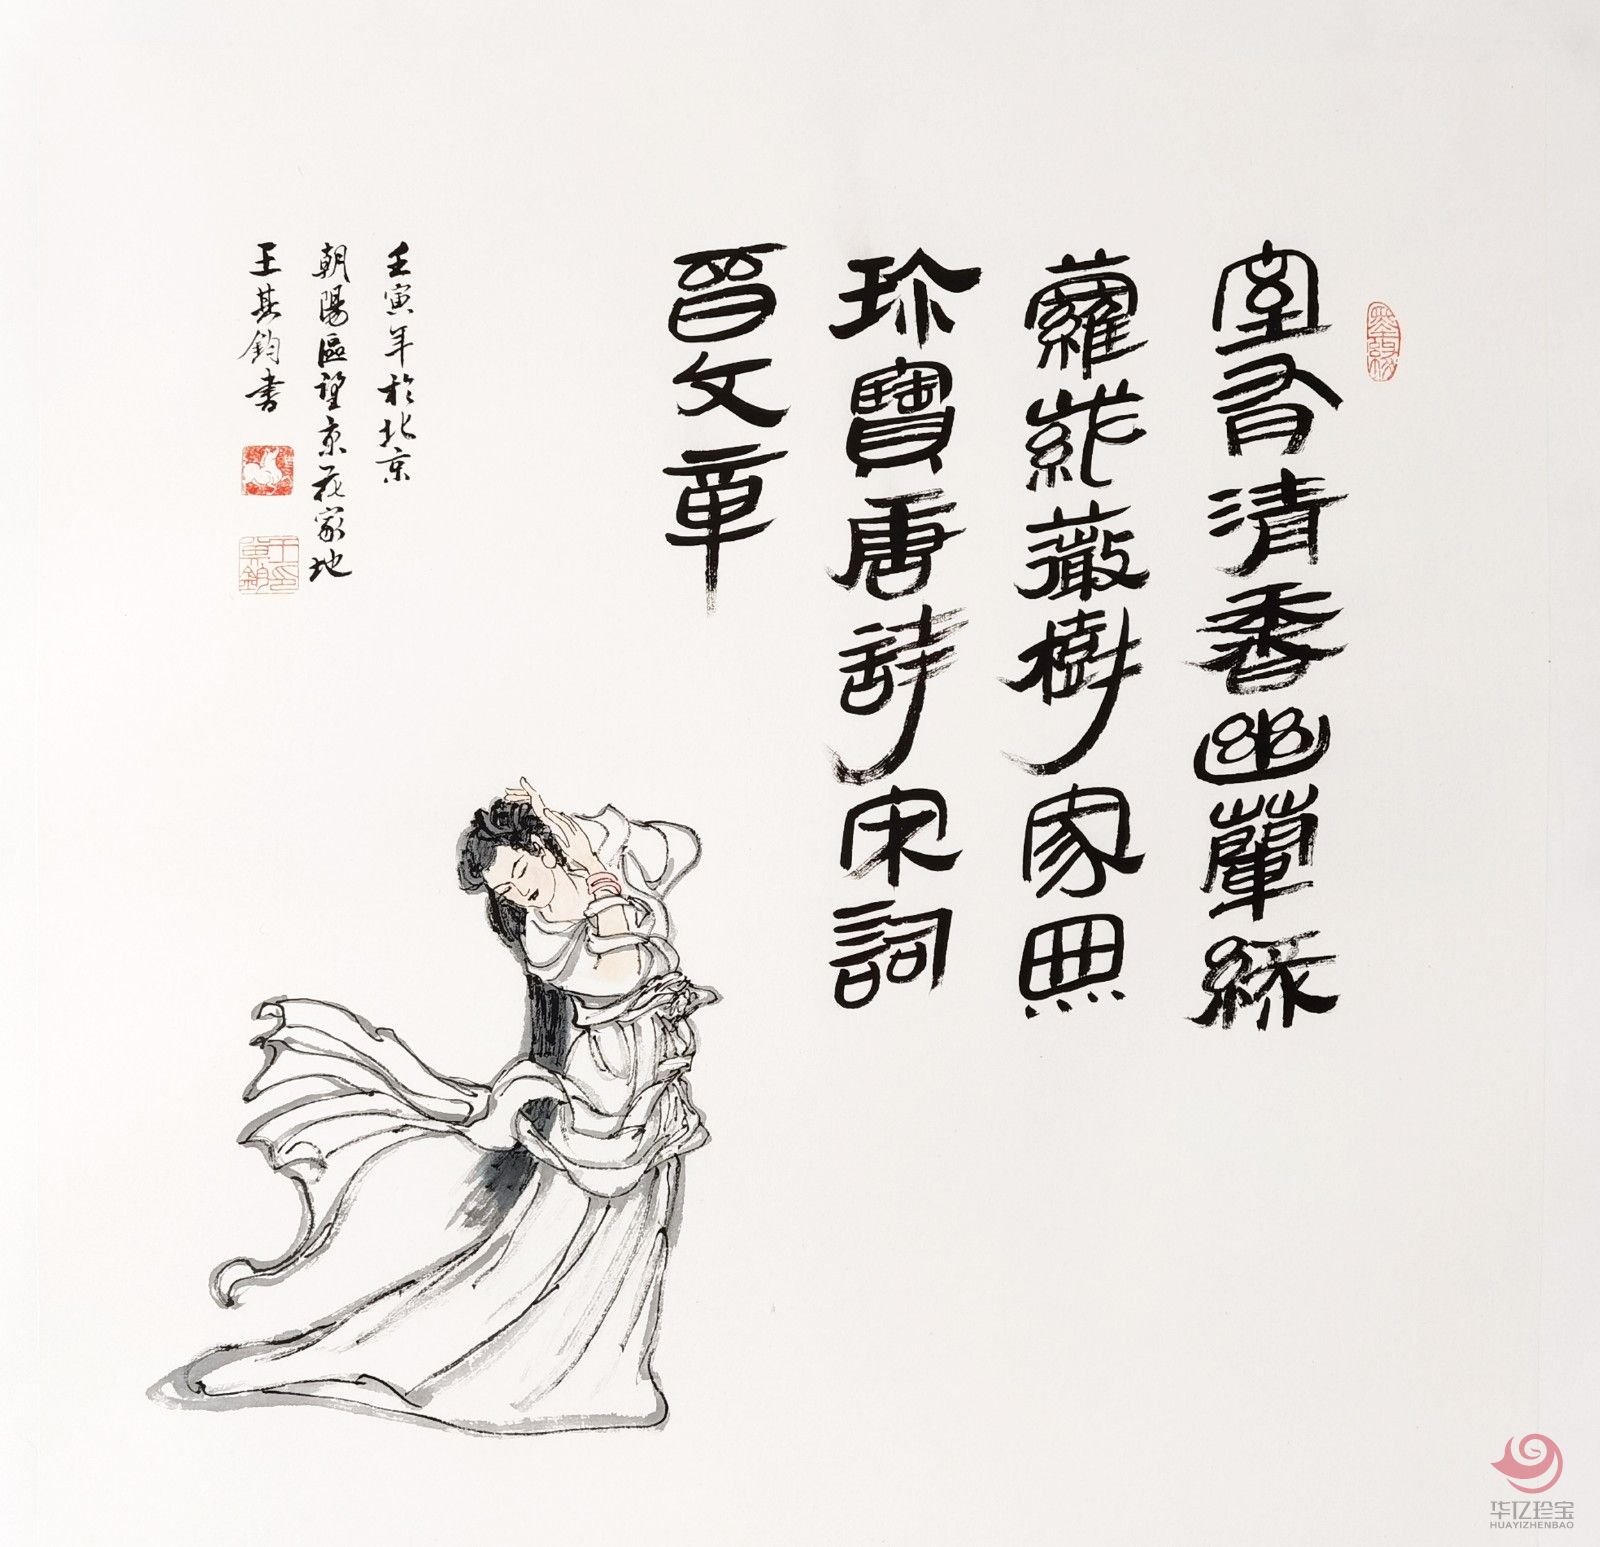 室有清香幽蘭綠
蘿紫薇樹家無
珍寶唐詩宋詞
晉文章
壬寅年於北京
朝陽區望京花家地
王其鈞書
华亿珍宝
HUAYIZHENBAO